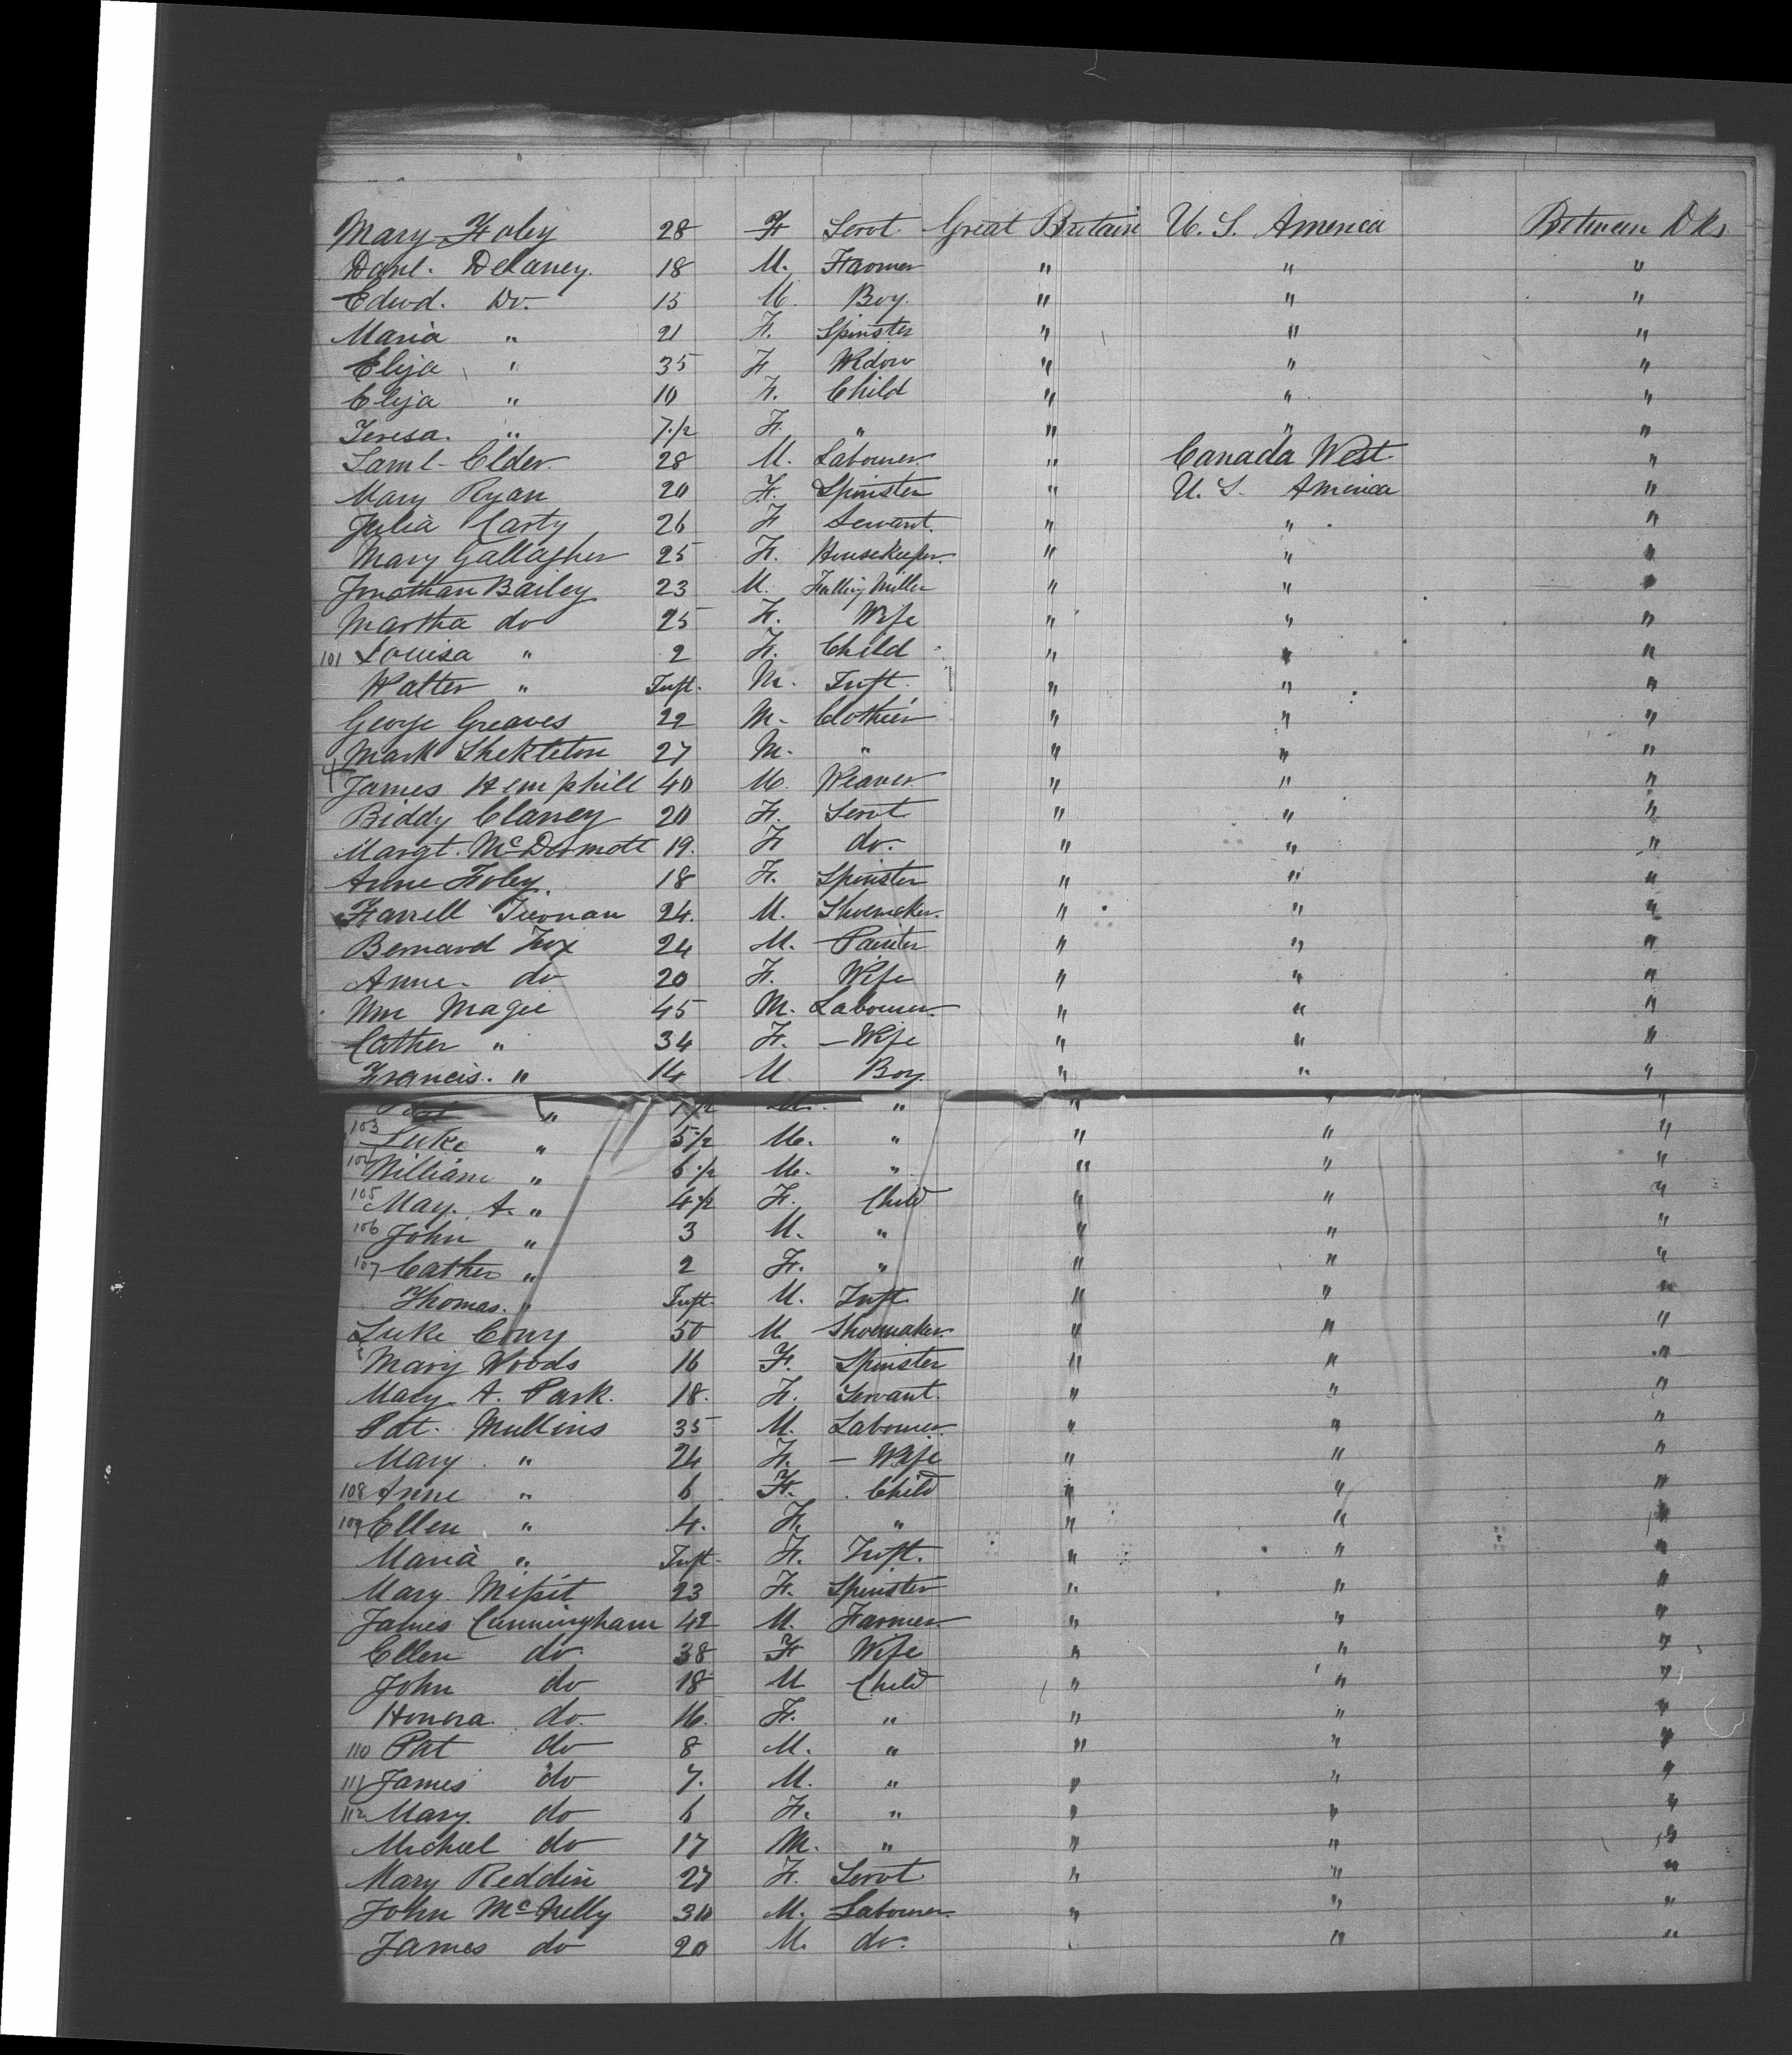 Mary Foley 28 F Servt. Great Britain U. S. America Between Dks
Danl. Delaney. 18 M. Farmer " " "
Edwd. Do. 15 M. Boy. " " "
Maria " 21 F. Spinster " " "
Eliza " 35 F Widow " " "
Eliza " 10 F. Child " " "
Teresa. " 7 1/2 F. " " " "
Saml. Elder. 28 M. Labourer. " Canada West "
Mary Ryan 20 F. Spinster " U. S. America "
Julia Carty 26 F Servant. " " "
Mary Gallagher 25 F. Housekeeper. " " "
Jonathan Bailey 23 M. Fulling Miller " " "
Martha do 25 F. Wife " " "
101 Louisa " 2 F. Child " " "
Walter " Inft. M. Inft. " " "
George Greaves 22 M. Clothier " " "
Mark Shekleton 27 M. " " " "
James Hemphill 40 M. Weaver " " "
Biddy Clancy 20 F. Servt " " "
Margt. McDermott 19. F do. " " "
Anne Foley. 18 F. Spinster " " "
Farrell Tiernan 24. M. Shoemaker. " " "
Bernard Fox 24 M. Painter " " "
Anne. do 20 F. Wife " " "
Wm Magee 45 M. Labourer. " " "
Cather " 34 F. Wife " " "
Francis. " 14 M Boy. " " "
" 1/2 M. " " " "
103 Luke " 5 1/2 M. " " " "
104 William " 6 1/2 M. " " " "
105 May. A. " 4 1/2 F. Child " " "
106 John " 3 M. " " " "
107 Cather " 2 F. " " " "
Thomas. " Inft. M. Inft " " "
Luke Cony 50 M Shoemaker. " " "
Mary Woods 16 F. Spinster " " "
Mary A. Park. 18. F. Servant. " " "
Pat. Mullins 35 M. Labourer. " " "
Mary " 24 F. Wife " " "
108 Anne " 6 F. Child " " "
109 Ellen " 4. F. " " " "
Maria " Inft. F. Inft. " " "
Mary 23 F. Spinster " " "
James Cunningham 42 M. Farmer. " " "
Ellen do. 38 F Wife " " "
John do 18 M Child " " "
Honora do. 16. F. " " " "
110 Pat do 8 M. " " " "
111 James do 7. M. " " " "
112 Mary. do 6 F. " " " "
Michael do 17 M. " " " "
Mary Reddin 27 F. Servt. " " "
John McNelly 30 M. Labourer. " " "
James do 20 M. do. " "